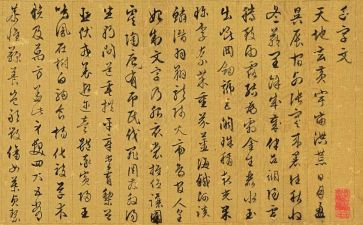 千字文
天地玄黃宇宙洪荒日月盈
昃辰宿列張寒來暑往秋收
冬藏閏餘成歲律呂調陽雲
騰致雨露結為霜金生麗水玉
出崑岡劍號巨闕珠稱夜光果
珍李柰菜重芥薑海鹹河淡
鱗潛羽翔龍師火帝鳥官人皇
始制文字乃服衣裳推位讓國
有虞陶唐弔民伐罪周發
坐朝問道垂拱平章愛育黎首
臣伏戎羌遐邇壹體率賓歸王
鳴鳳在樹白駒食場化被草木
賴及萬方蓋此身髮四大五常
恭惟鞠養豈敢毀傷女慕貞絜